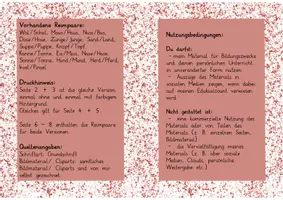 Vorhandene Reimpaare:
Wal/Schal, Maus/Haus, Nuss/Bus,
Dose/Hose, Zunge/Junge, Sand/Land,
Suppe/Puppe, Knopf/Topf,
Kanne/Tanne, Eis/Mais, Nase/Hase,
Sonne/Tonne, Hund/Mund, Herd/Pferd,
Igel/Pinsel
Druckhinweis:
Seite 2 + 3 ist die gleiche Version,
einmal ohne und einmal mit farbigem
Hintergrund.
Gleiches gilt für Seite 4 + 5
Seite 6 - 8 enthalten die Reimpaare
für beide Versionen.
Quellenangaben:
Schriftart: Grundschrift
Bildmaterial/ Cliparts: sämtliches
Bildmaterial/ Cliparts sind von mir
selbst gezeichnet.
Nutzungsbedingungen:
Du darfst:
- mein Material für Bildungszwecke
und deinen persönlichen Unterricht
in unveränderter Form nutzen.
- Auszüge des Materials in
sozialen Medien zeigen, wenn dabei
auf meinen Eduki account verwiesen
wird.
Nicht gestattet ist:
- eine kommerzielle Nutzung des
Materials oder von Teilen des
Materials (z. B. einzelnen Seiten,
Bildmaterial)
- die Vervielfältigung meines
Materials (z. B. über soziale
Medien, Clouds, persönliche
Weitergabe etc.)